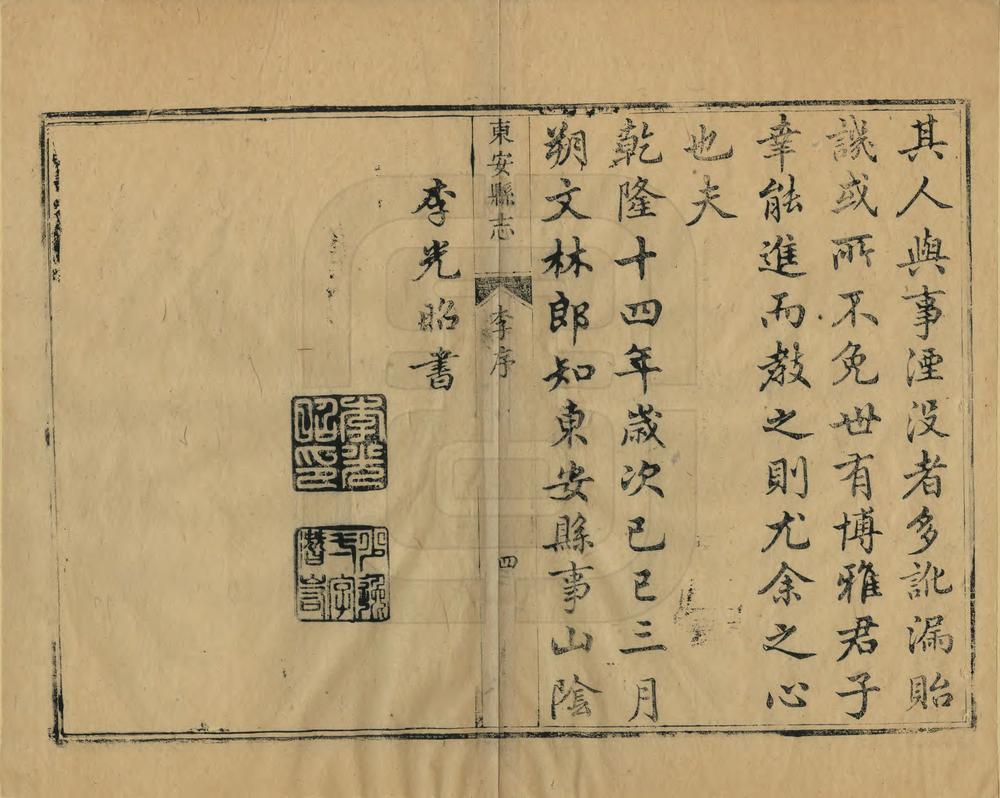 其人與事湮没者多訛漏貽
譏或所不免世有博雅君子
幸能進而教之則尤余之心
也夫
乾隆十四年歲次己巳三月
朔文林郎知東安縣事山陰
東安縣志 李序 四
李光昭書
李光昭印